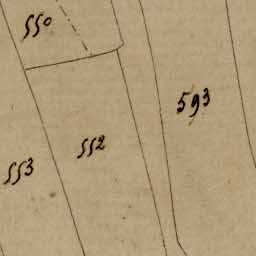 550
593
552
553